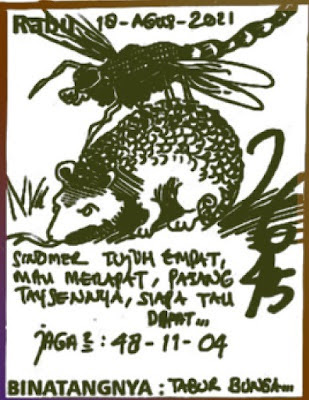 Rabu 18-AGUS-2021
26
45
SINOMER TUJUH EMPAT,
MAU MERAPAT, PASANG
TAYSENNYA, SIAPA TAU
DAPAT...
JAGA2: 48-11-04
BINATANGNYA: TABUR BUNGA...